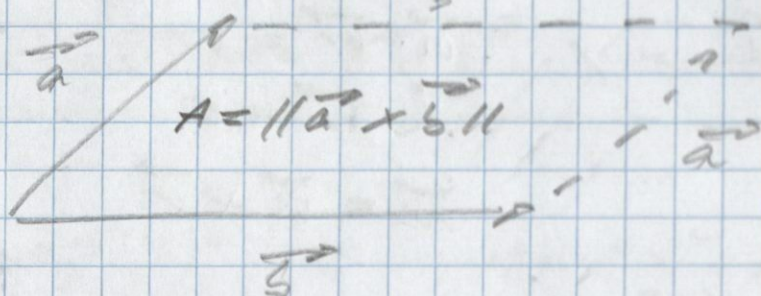 a⃗
A = ||a⃗ × b⃗||
a⃗
b⃗